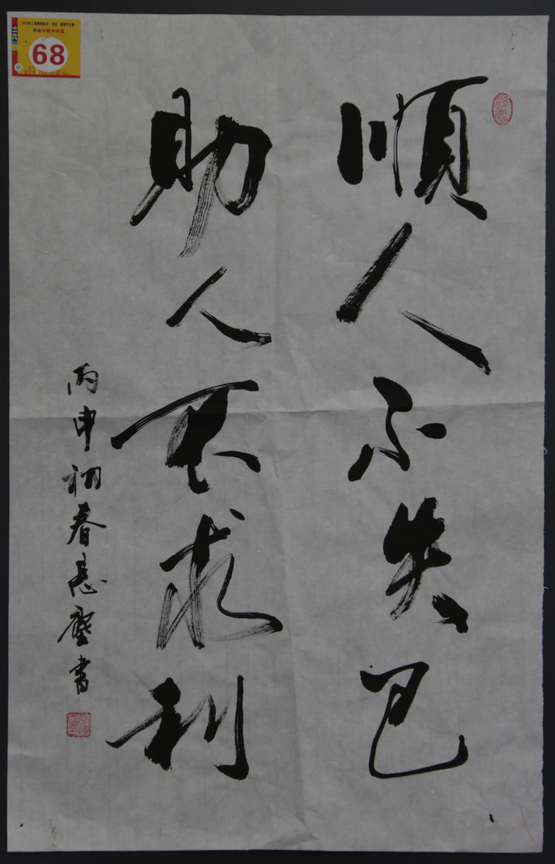 順人不失己
助人不求利
丙申初春
書
68